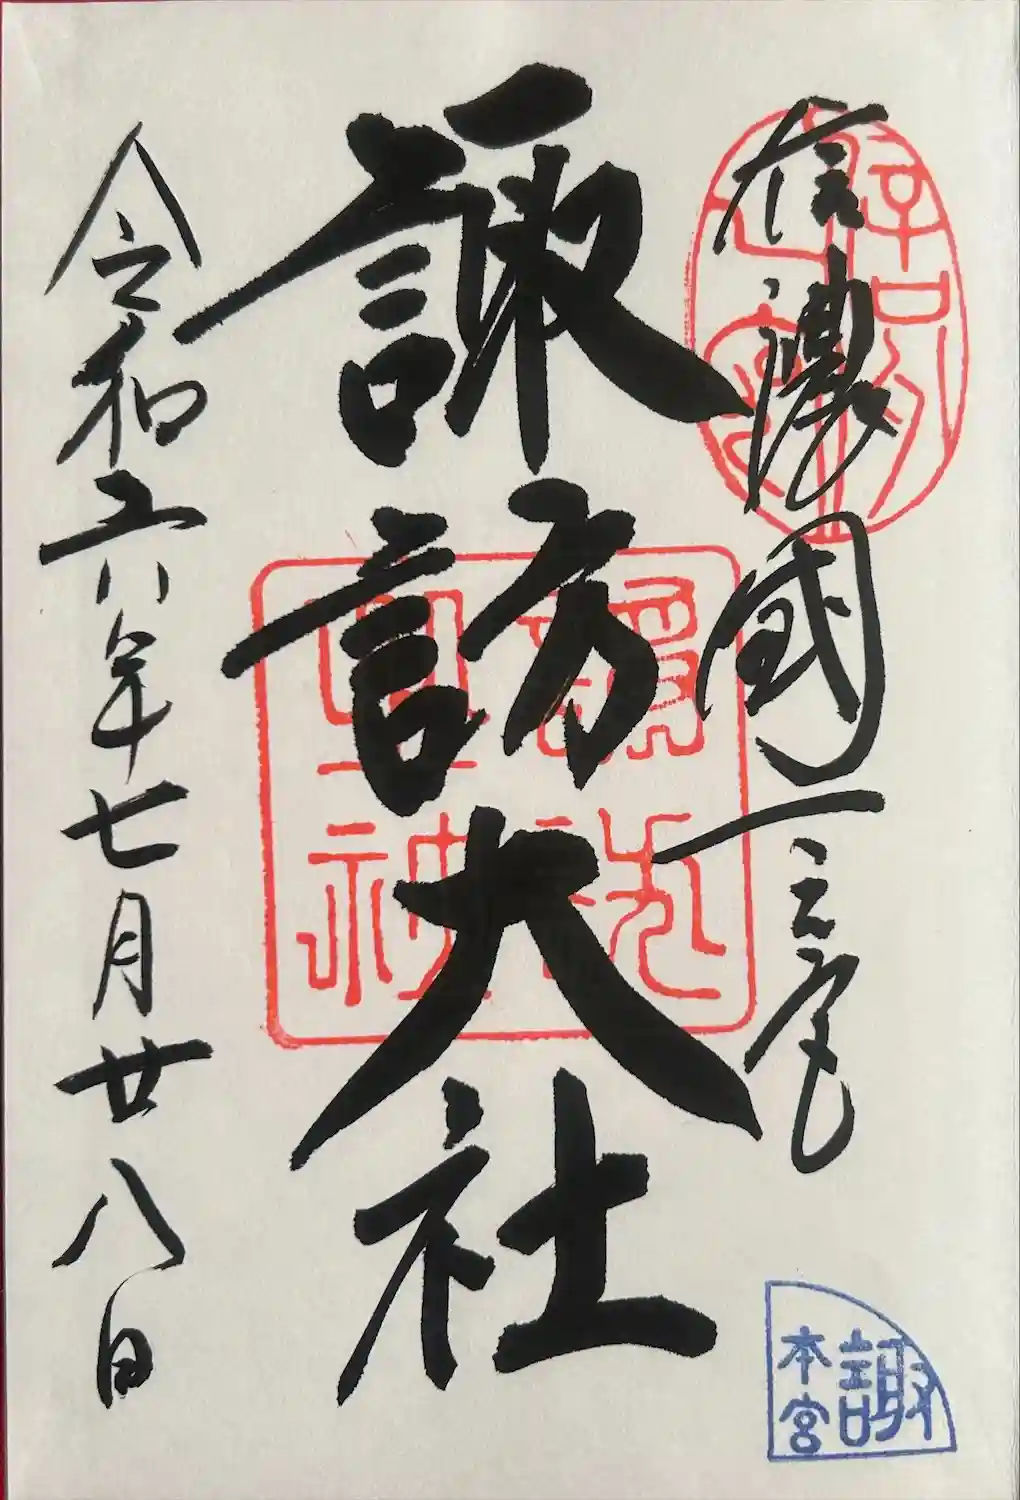 信濃國一之宮
諏訪大社
令和六年七月廿八日
諏
本宮